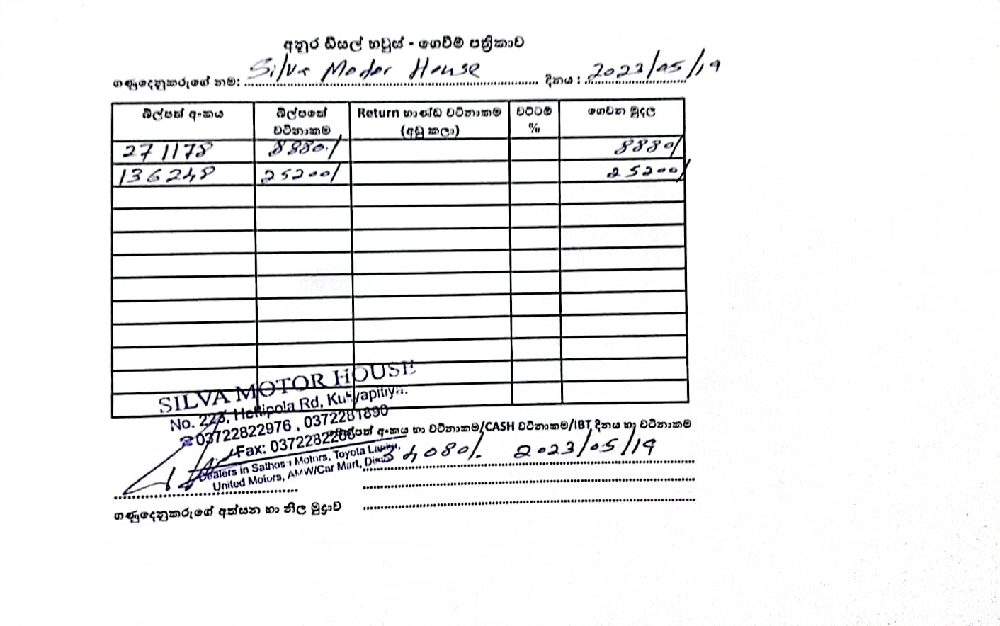 අනුර ඩීසල් හවුස් - ගෙවීම් පත්‍රිකාව
ගණුදෙනුකරුගේ නම: Silva Motor House දිනය : 2023/05/19
බිල්පත් අංකය බිල්පතේ වටිනාකම Return භාණ්ඩ වටිනාකම (අඩු කලා) වට්ටම් % ගෙවන මුදල
271178 8880/ 8880/
136248 25200/ 25200/
SILVA MOTOR HOUSE
No. 223, Hettipola Rd,
03722822976 , 0372281890
Fax:
අංකය හා වටිනාකම/CASH වටිනාකම/IBT දිනය හා වටිනාකම
34080/. 2023/05/19
Dealers in Motors, Toyota
United Motors, AMW/Car Mart,
ගණුදෙනුකරුගේ අත්සන හා නිල මුද්‍රාව